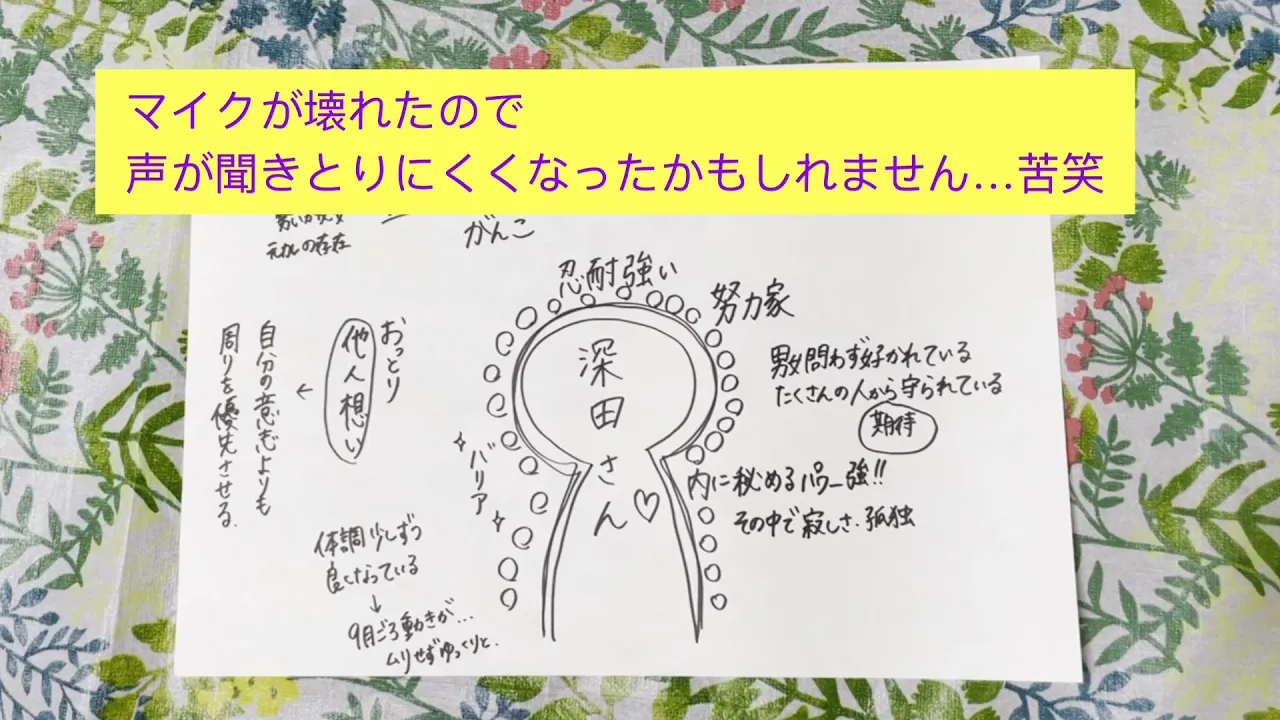 マイクが壊れたので
声が聞きとりにくくなったかもしれません…苦笑
元カレの存在
がんこ
忍耐強い
努力家
深田さん♡
男女問わず好かれている
たくさんの人から守られている
期待
内に秘めるパワー強!!
その中で寂しさ・孤独
おっとり
他人想い
←
自分の意志よりも
周りを優先させる.
バリア
体調少しずつ
良くなっている
↓
9月ごろ動きが…
ムリせずゆっくりと.